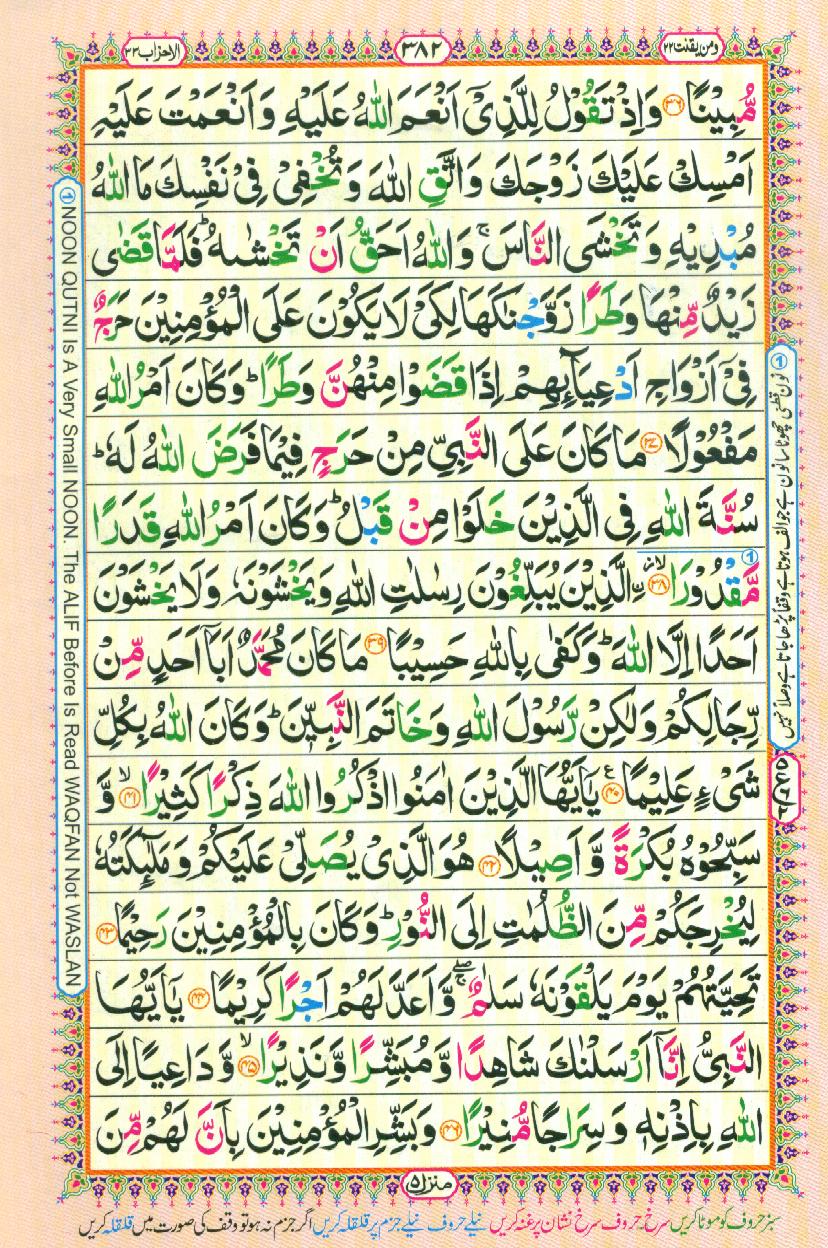 ومن یقنت ۲۲
۳۸۲
الاحزاب ۳۳
مُّبِيْنًا ﴿۳۶﴾ وَاِذْ تَقُوْلُ لِلَّذِيْٓ اَنْعَمَ اللّٰهُ عَلَيْهِ وَاَنْعَمْتَ عَلَيْهِ
اَمْسِكْ عَلَيْكَ زَوْجَكَ وَاتَّقِ اللّٰهَ وَتُخْفِيْ فِيْ نَفْسِكَ مَا اللّٰهُ
مُبْدِيْهِ وَتَخْشَى النَّاسَ ۚ وَاللّٰهُ اَحَقُّ اَنْ تَخْشٰىهُ ؕ فَلَمَّا قَضٰى
زَيْدٌ مِّنْهَا وَطَرًا زَوَّجْنٰكَهَا لِكَيْ لَا يَكُوْنَ عَلَى الْمُؤْمِنِيْنَ حَرَجٌ
فِيْٓ اَزْوَاجِ اَدْعِيَآىِٕهِمْ اِذَا قَضَوْا مِنْهُنَّ وَطَرًا ؕ وَكَانَ اَمْرُ اللّٰهِ
مَفْعُوْلًا ﴿۳۷﴾ مَا كَانَ عَلَى النَّبِيِّ مِنْ حَرَجٍ فِيْمَا فَرَضَ اللّٰهُ لَهٗ ؕ
سُنَّةَ اللّٰهِ فِي الَّذِيْنَ خَلَوْا مِنْ قَبْلُ ؕ وَكَانَ اَمْرُ اللّٰهِ قَدَرًا
مَّقْدُوْرًا ﴿۳۸﴾ ۙ ۨالَّذِيْنَ يُبَلِّغُوْنَ رِسٰلٰتِ اللّٰهِ وَيَخْشَوْنَهٗ وَلَا يَخْشَوْنَ
اَحَدًا اِلَّا اللّٰهَ ؕ وَكَفٰى بِاللّٰهِ حَسِيْبًا ﴿۳۹﴾ مَا كَانَ مُحَمَّدٌ اَبَآ اَحَدٍ مِّنْ
رِّجَالِكُمْ وَلٰكِنْ رَّسُوْلَ اللّٰهِ وَخَاتَمَ النَّبِيّٖنَ ؕ وَكَانَ اللّٰهُ بِكُلِّ
شَيْءٍ عَلِيْمًا ﴿۴۰﴾ ع يٰٓاَيُّهَا الَّذِيْنَ اٰمَنُوا اذْكُرُوا اللّٰهَ ذِكْرًا كَثِيْرًا ۙ﴿۴۱﴾ وَّ
سَبِّحُوْهُ بُكْرَةً وَّاَصِيْلًا ﴿۴۲﴾ هُوَ الَّذِيْ يُصَلِّيْ عَلَيْكُمْ وَمَلٰٓىِٕكَتُهٗ
لِيُخْرِجَكُمْ مِّنَ الظُّلُمٰتِ اِلَى النُّوْرِ ؕ وَكَانَ بِالْمُؤْمِنِيْنَ رَحِيْمًا ﴿۴۳﴾
تَحِيَّتُهُمْ يَوْمَ يَلْقَوْنَهٗ سَلٰمٌ ۖۚ وَّاَعَدَّ لَهُمْ اَجْرًا كَرِيْمًا ﴿۴۴﴾ يٰٓاَيُّهَا
النَّبِيُّ اِنَّآ اَرْسَلْنٰكَ شَاهِدًا وَّمُبَشِّرًا وَّنَذِيْرًا ۙ﴿۴۵﴾ وَّدَاعِيًا اِلَى
اللّٰهِ بِاِذْنِهٖ وَسِرَاجًا مُّنِيْرًا ﴿۴۶﴾ وَبَشِّرِ الْمُؤْمِنِيْنَ بِاَنَّ لَهُمْ مِّنَ
منزل ۵
سبز حروف کو موٹا کریں سرخ حروف سرخ نشان پر غنہ کریں نیلے حروف نیلے جزم پر قلقلہ کریں اگر جزم نہ ہو تو وقف کی صورت میں قلقلہ کریں
① نون قطنی چھوٹا سا نون ہے جو الف ہوتا ہے وقفاً پڑھا جاتا ہے وصلاً نہیں
① NOON QUTNI Is A Very Small NOON. The ALIF Before Is Read WAQFAN Not WASLAN